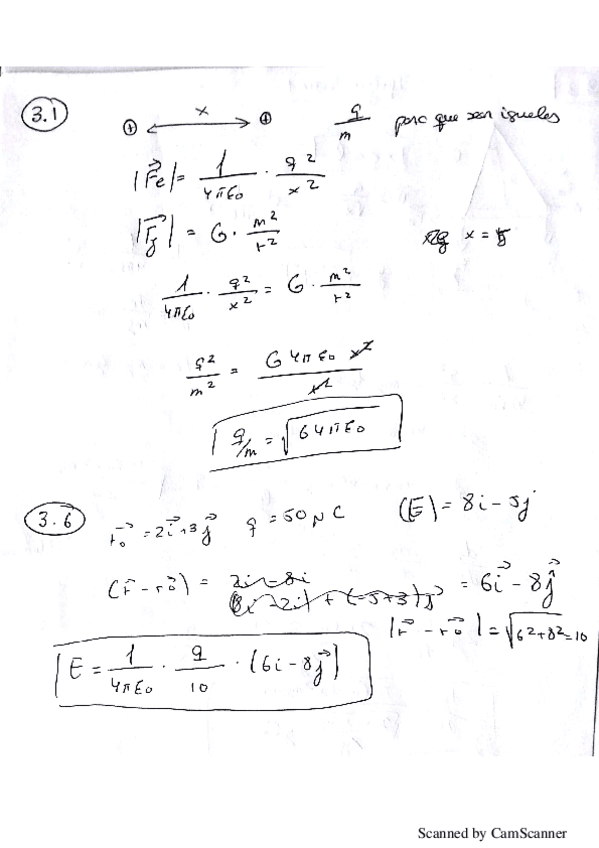 3.1
⊕ x ⊕ q/m para que sean iguales
|Fe| = 1/4πε0 · q²/x²
|Fg| = G · m²/r²
x = r
1/4πε0 · q²/x² = G · m²/r²
q²/m² = G4πε0 x²/x²
q/m = √G4πε0
3.6
r0 = 2i+3j q = 50 μC (E) = 8i - 5j
(r - r0) = = 6i - 8j
|r - r0| = √6²+8² = 10
E = 1/4πε0 · q/10 · (6i - 8j)
Scanned by CamScanner